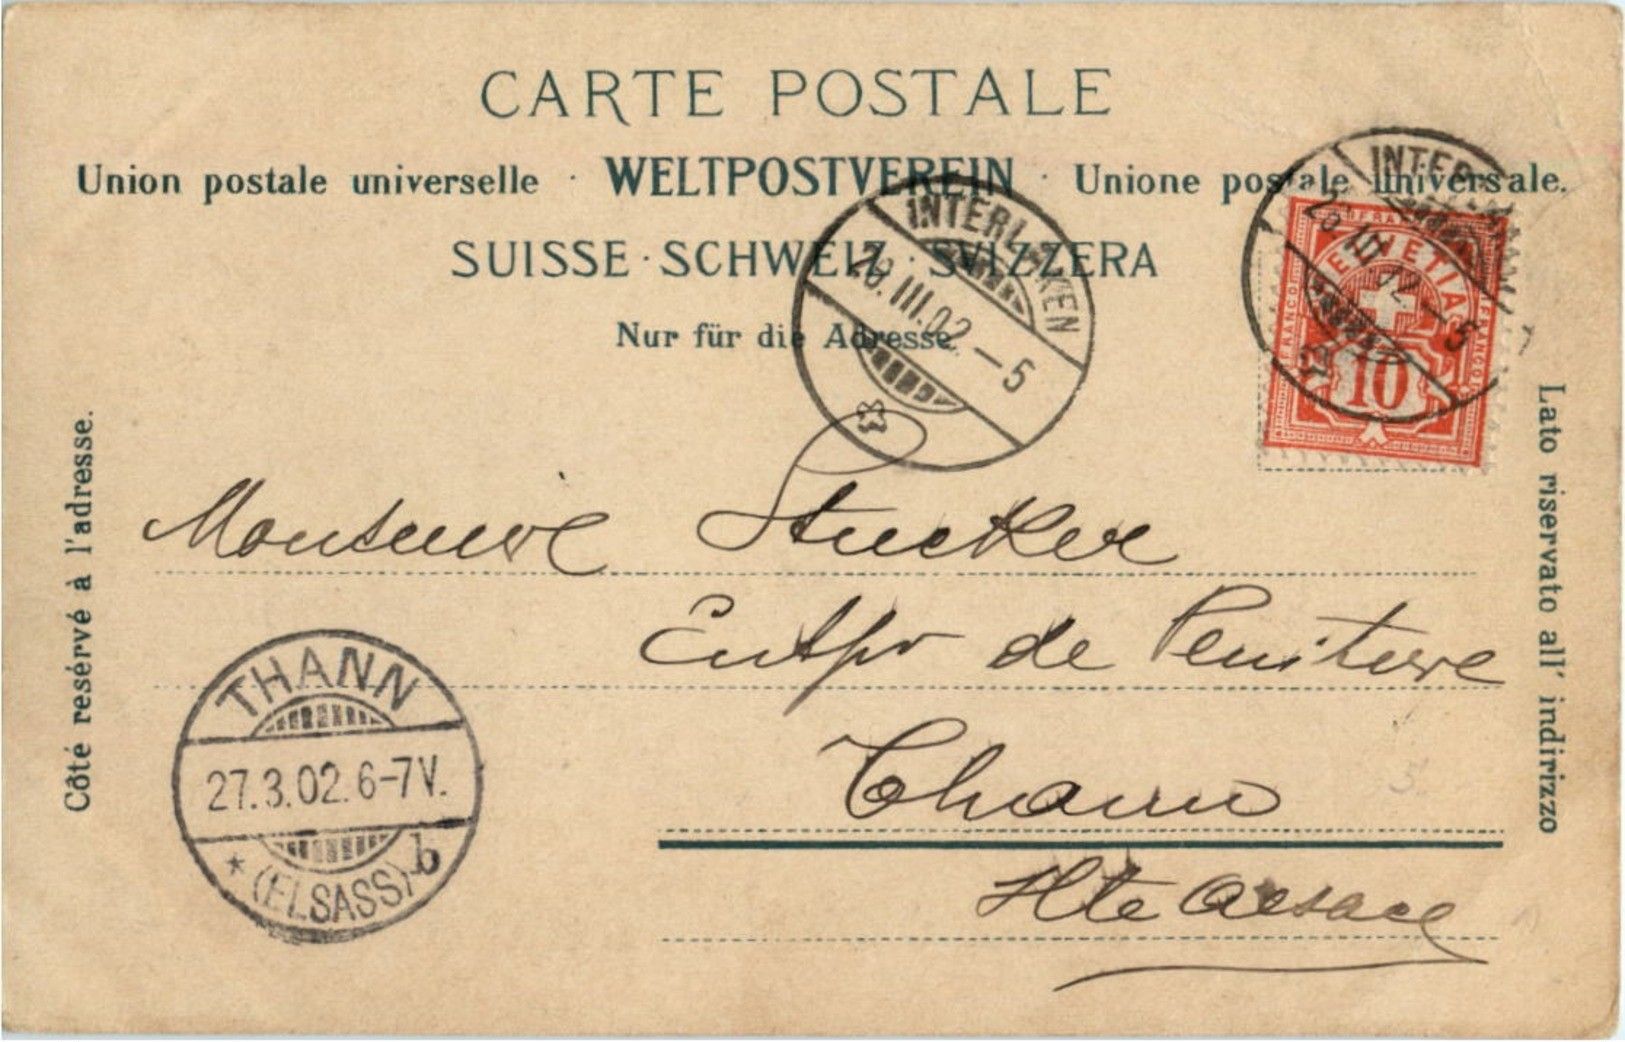 CARTE POSTALE
Union postale universelle · WELTPOSTVEREIN · Unione postale universale.
SUISSE · SCHWEIZ · SVIZZERA
Nur für die Adresse
INTERLAKEN
26.III.02–5
INTER
26.III.02–5
FRANCO
HELVETIA
FRANCO
FRANCO
10
Côté resérvé à l'adresse.
Lato riservato all' indirizzo
Monsieur Stucker
Entpr de Peinture
Thann
Hte Alsace
THANN
27.3.02.6-7V.
* (ELSASS) b